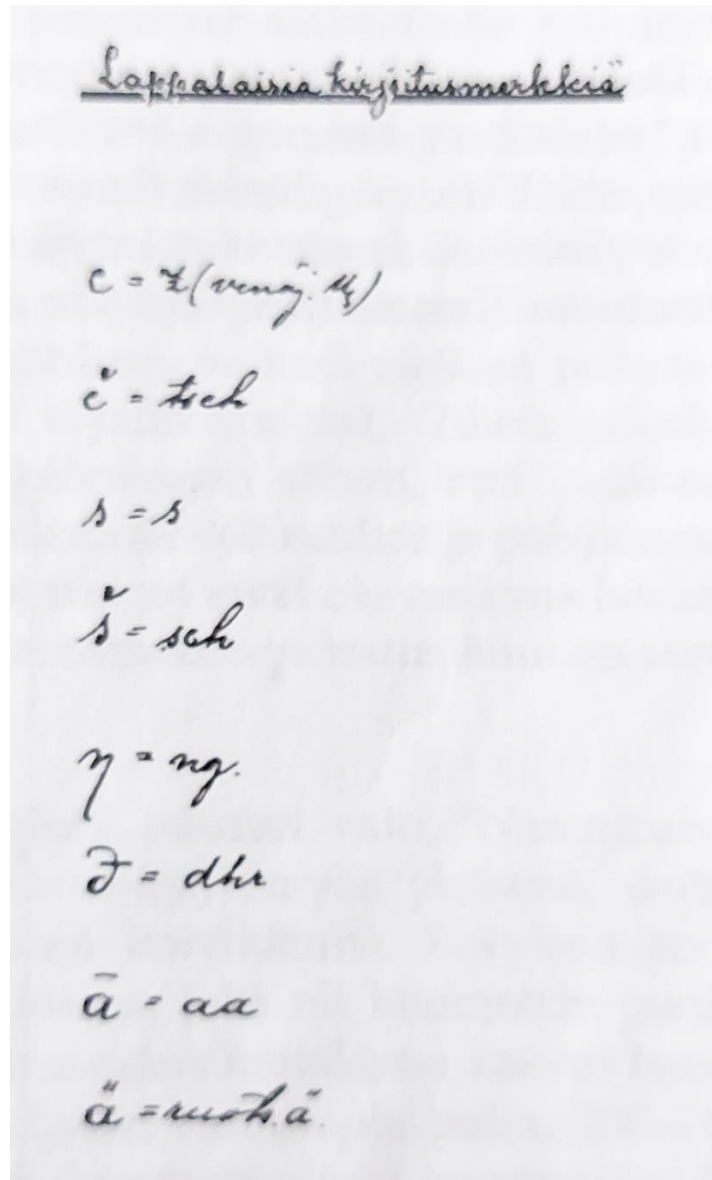 Lappalaisia kirjoitusmerkkiä
c = z (venäj. ц)
č = tsch
s = s
š = sch
η = ng.
đ = dhr
ā = aa
ä = ruots. ä.